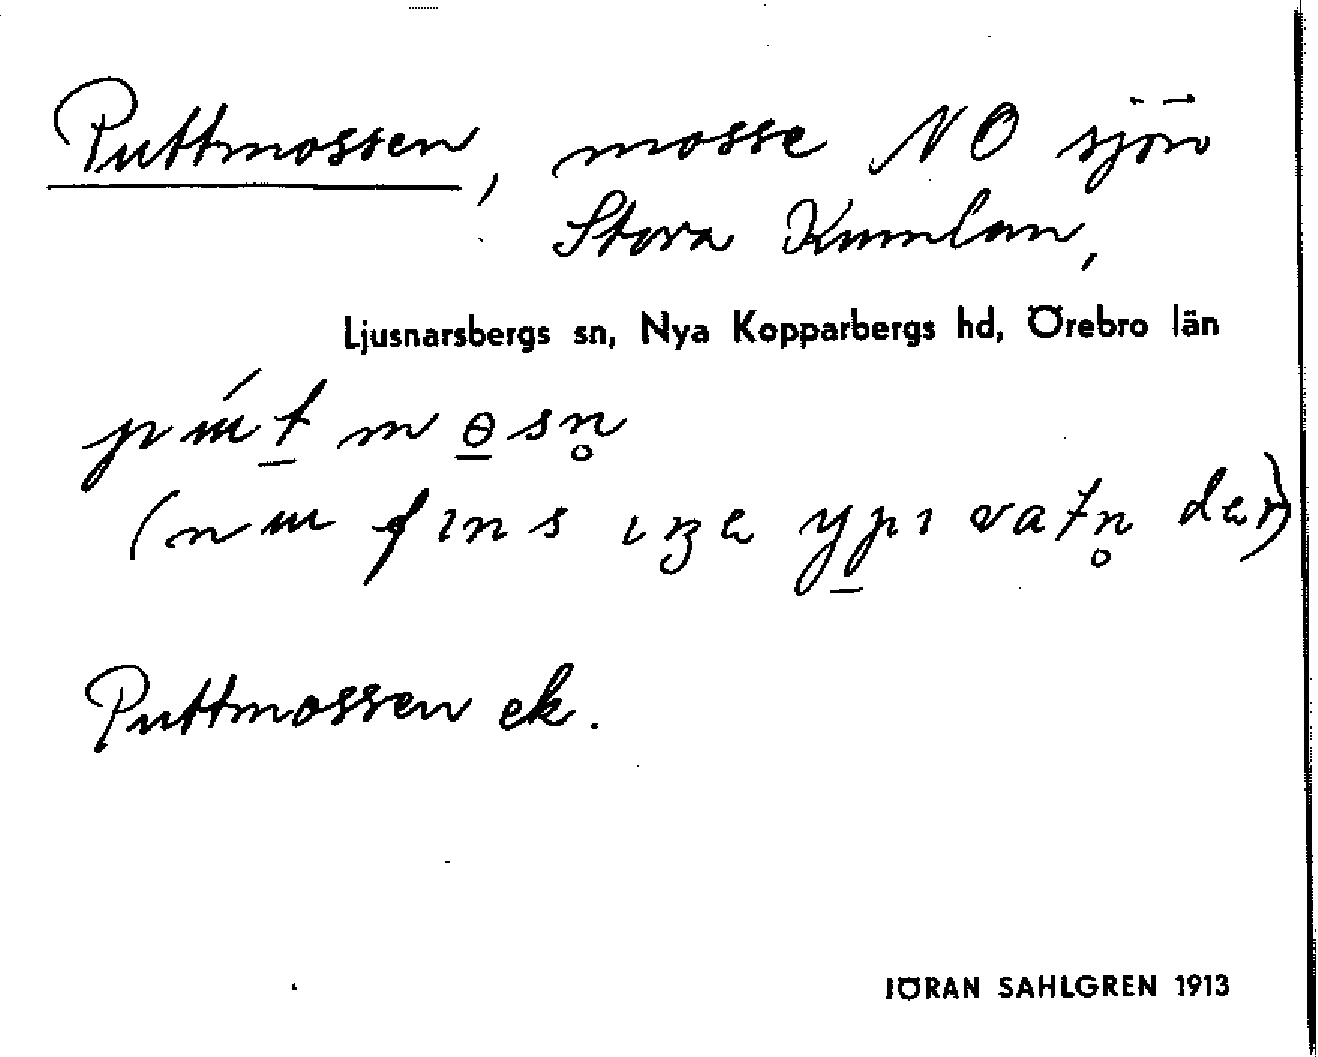 Puttmossen, mosse NO sjön
Stora Kumlan,
Ljusnarsbergs sn, Nya Kopparbergs hd, Örebro län
pɯ́t̲mɵ̲sn̥
(nɯ fɩns ɩŋa yp̲ɩ vatn̥ dær)
Puttmossen ek.
JÖRAN SAHLGREN 1913